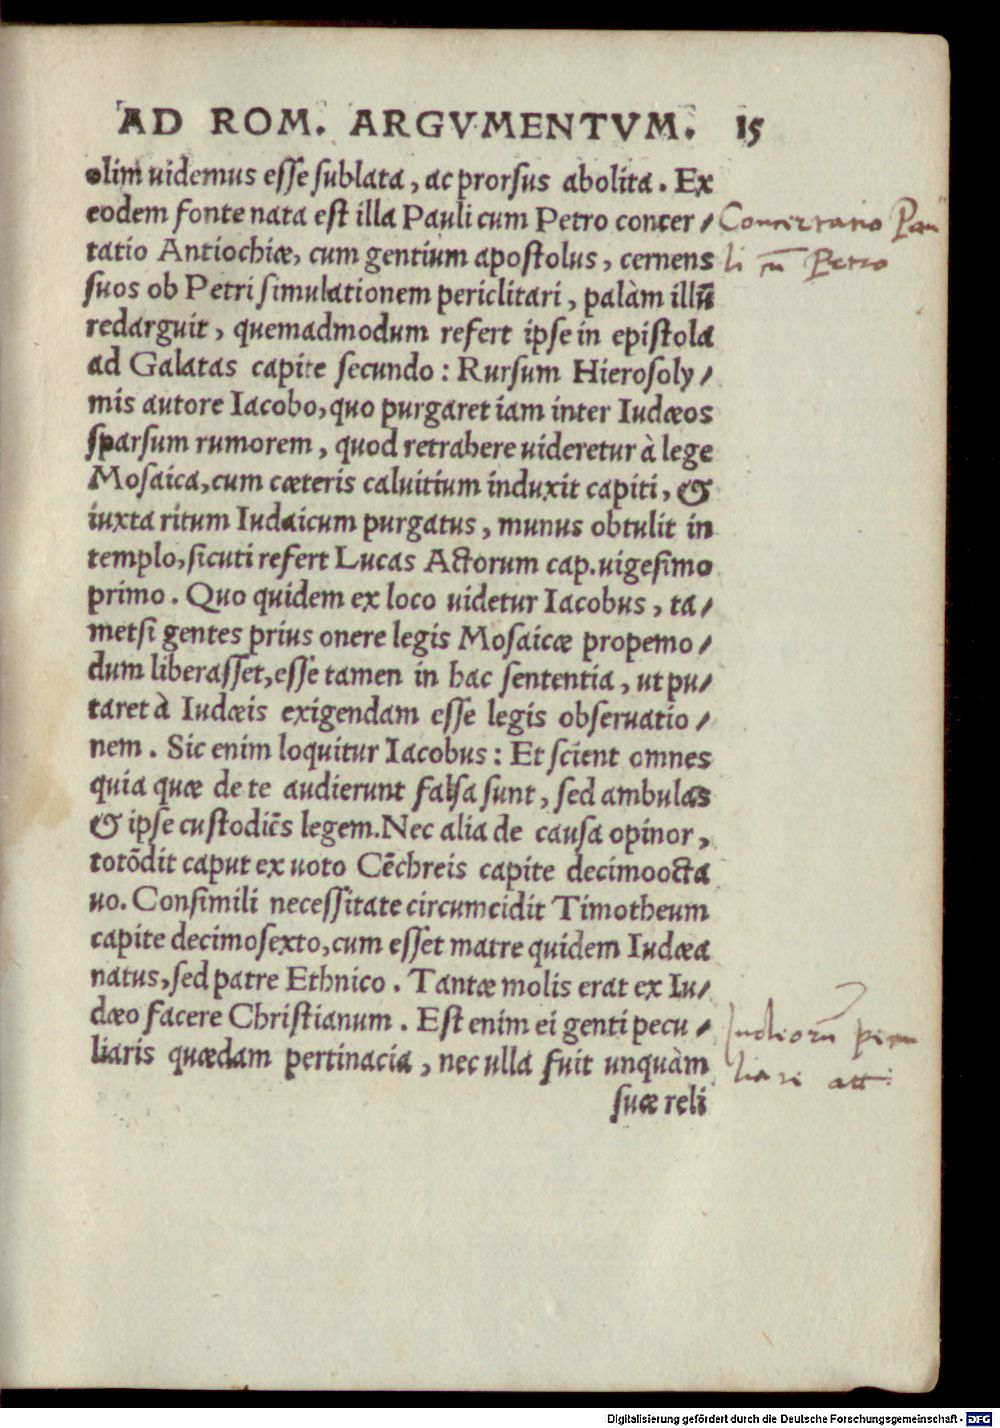 AD ROM. ARGVMENTVM. 15
olim uidemus esse sublata, ac prorsus abolita. Ex
eodem fonte nata est illa Pauli cum Petro concer/
tatio Antiochiæ, cum gentium apostolus, cernens
suos ob Petri simulationem periclitari, palàm illũ
redarguit, quemadmodum refert ipse in epistola
ad Galatas capite secundo: Rursum Hierosoly/
mis autore Iacobo, quo purgaret iam inter Iudæos
sparsum rumorem, quod retrahere uideretur à lege
Mosaica, cum cæteris caluitium induxit capiti, &
iuxta ritum Iudaicum purgatus, munus obtulit in
templo, sicuti refert Lucas Actorum cap. uigesimo
primo. Quo quidem ex loco uidetur Iacobus, ta/
metsi gentes prius onere legis Mosaicæ propemo/
dum liberasset, esse tamen in hac sententia, ut pu/
taret à Iudæis exigendam esse legis obseruatio/
nem. Sic enim loquitur Iacobus: Et scient omnes
quia quæ de te audierunt falsa sunt, sed ambulas
& ipse custodiẽs legem. Nec alia de causa opinor,
totõdit caput ex uoto Cẽchreis capite decimoocta
uo. Consimili necessitate circumcidit Timotheum
capite decimosexto, cum esset matre quidem Iudæa
natus, sed patre Ethnico. Tantæ molis erat ex Iu/
dæo facere Christianum. Est enim ei genti pecu/
liaris quædam pertinacia, nec ulla fuit unquàm
suæ reli
Concertatio Pau
li cũ Petro
Iudeorũ pecu
liari
Digitalisierung gefördert durch die Deutsche Forschungsgemeinschaft - DFG